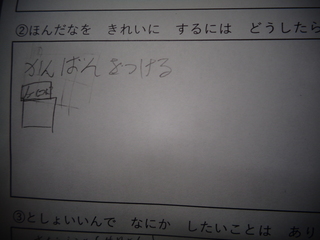 ②ほんだなを　きれいに　するには　どうしたら
かんばんをつける
③としょいいんで　なにか　したいことは　あり